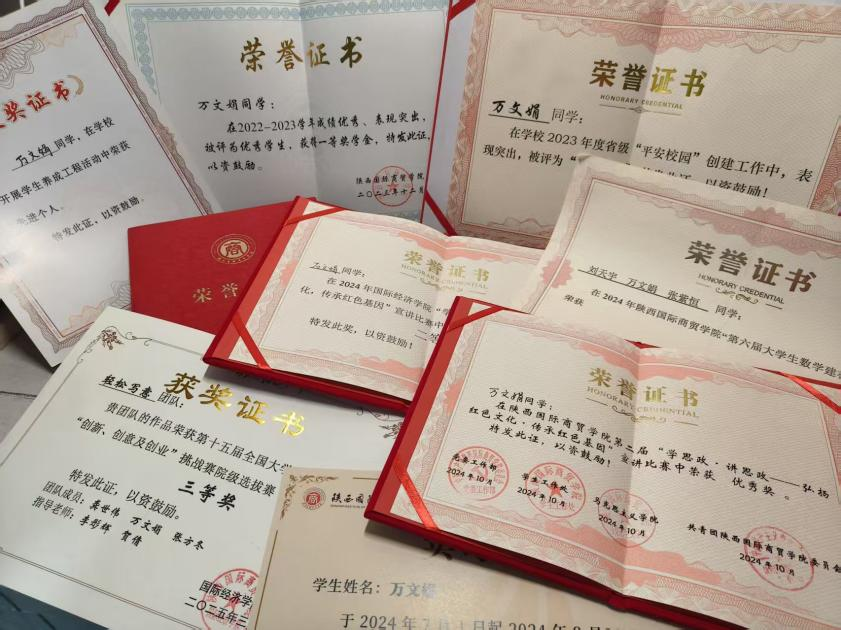 奖证书
万文娟同学,在学校
开展学生养成工程活动中荣获
先进个人。
特发此证,以资鼓励。
荣誉证书
万文娟同学:
在2022-2023学年成绩优秀、表现突出,
被评为优秀学生,获得一等奖学金,特发此证,
以资鼓励。
陕西国际商贸学院
二〇二三年十二月
荣誉证书
HONORARY CREDENTIAL
万文娟 同学:
在学校2023年度省级“平安校园”创建工作中,表
现突出,被评为“
以资鼓励!
商
荣誉
荣誉证书
HONORARY CREDENTIAL
万文娟 同学:
在2024年国际经济学院“学
化,传承红色基因”宣讲比赛中
二等
特发此奖,以资鼓励!
荣誉证书
HONORARY CREDENTIAL
刘天宇 万文娟 张紫恒 同学:
在2024年陕西国际商贸学院“第六届大学生数学建
荣获
获奖证书
轻松写意 团队:
贵团队的作品荣获第十五届全国大学
“创新、创意及创业”挑战赛院级选拔赛
三等奖
特发此证,以资鼓励。
团队成员:吴世伟 万文娟 张方冬
指导老师:李彤辉 贺倩
国际经济学
二〇二五年三
荣誉证书
HONORARY CREDENTIAL
万文娟同学:
在陕西国际商贸学院第二届“学思政·讲思政——弘扬
红色文化·传承红色基因”宣讲比赛中荣获 优秀奖。
特发此证,以资鼓励!
党委工作部
2024年10月
学生工作处
2024年10月
马克思主义学院
2024年10月
共青团陕西国际商贸学院委员会
2024年10月
商
陕西国
学生姓名:万文娟
于2024年7月1日起2024年